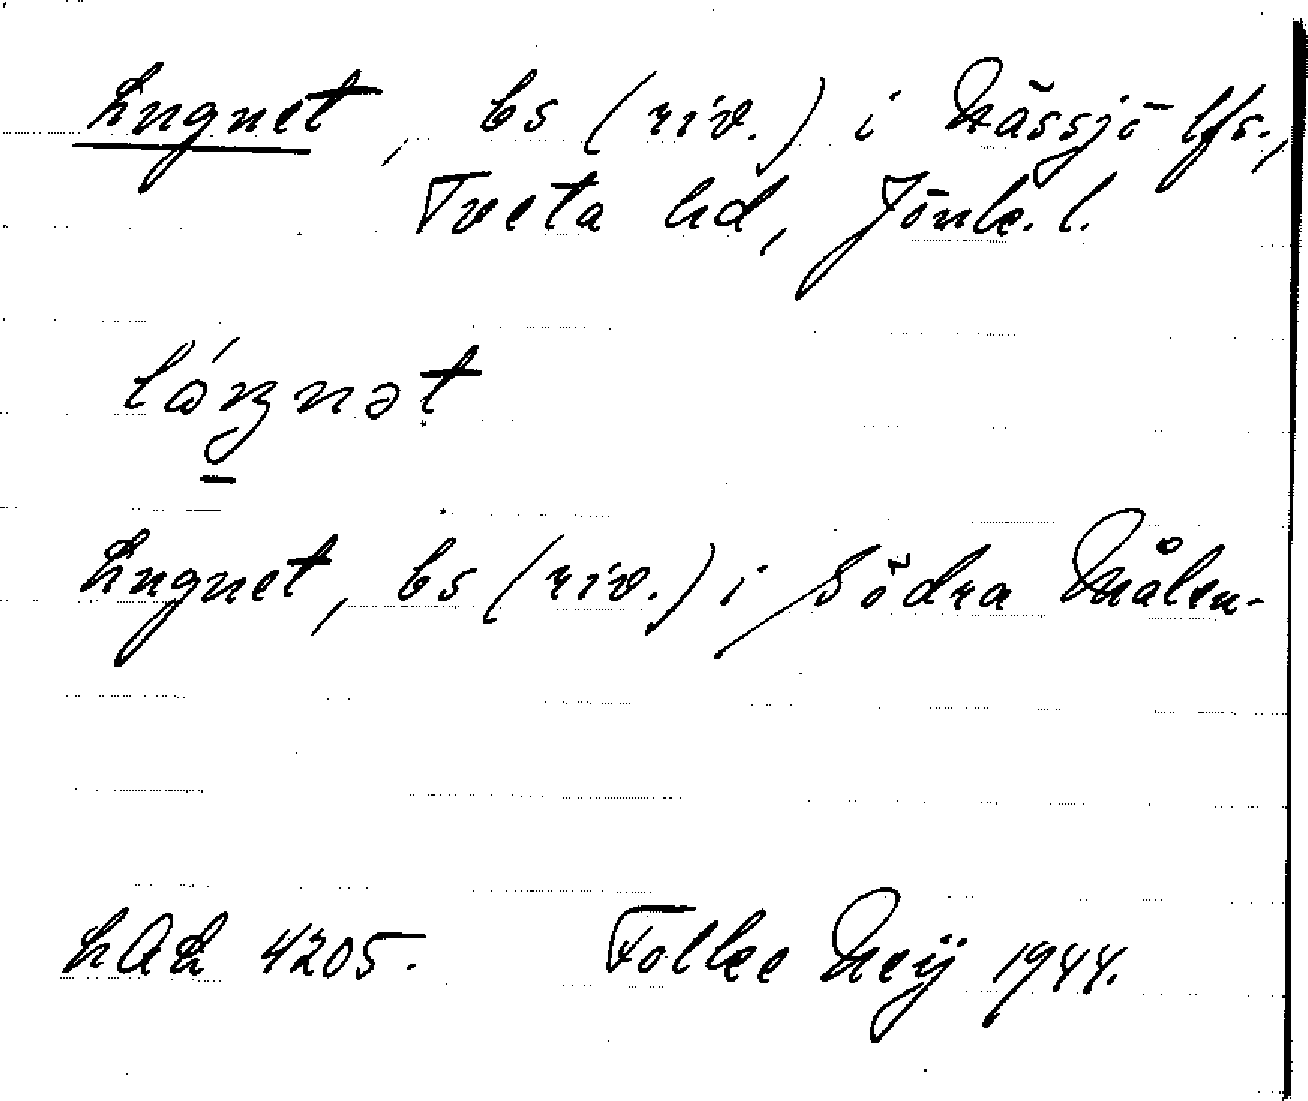 Lugnet, bs (riv.) i Nässjö lfs.,
Tveta hd, Jönk. l.
Lugnet, bs (riv.) i Södra Målen.
LAL 4205. Folke Neij 1944.